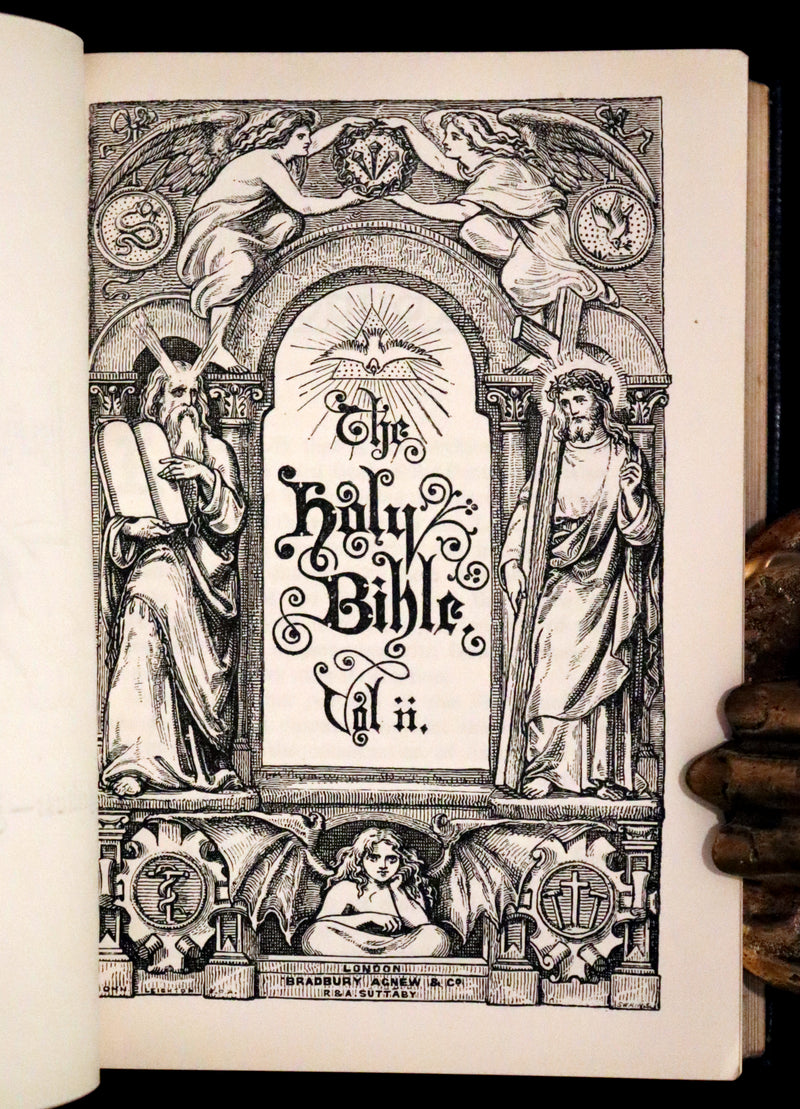 The
Holy
Bible.
Vol ii.
LONDON
BRADBURY AGNEW & Co.
R & A. SUTTABY
LEIGHTON